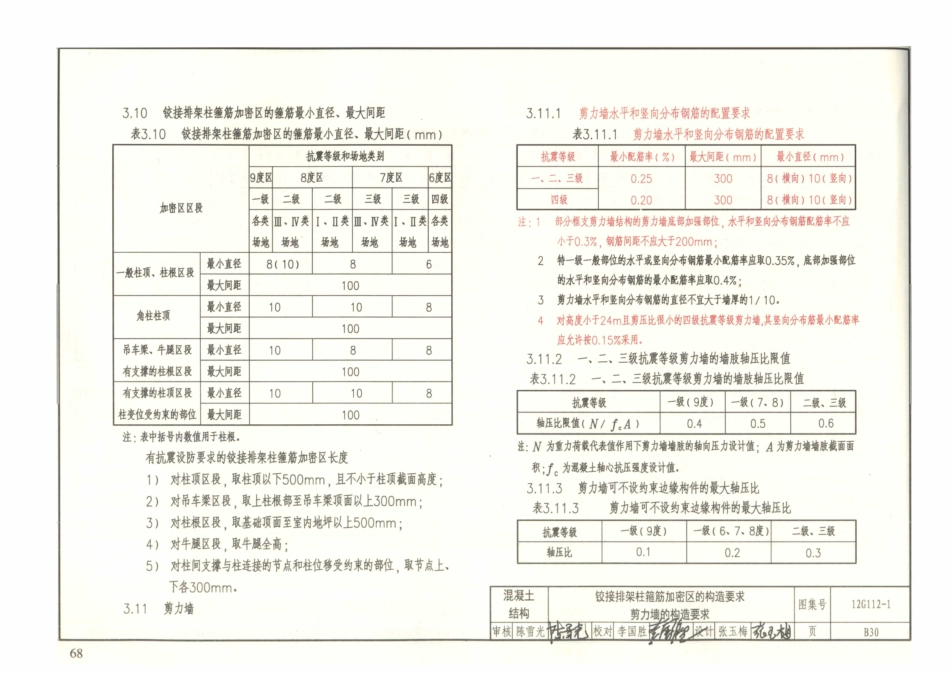 3.10 铰接排架柱箍筋加密区的箍筋最小直径、最大间距
表3.10 铰接排架柱箍筋加密区的箍筋最小直径、最大间距(mm)
加密区区段 抗震等级和场地类别
9度区 8度区 7度区 6度区
一级 二级 二级 三级 三级 四级
各类场地 Ⅲ、Ⅳ类场地 Ⅰ、Ⅱ类场地 Ⅲ、Ⅳ类场地 Ⅰ、Ⅱ类场地 各类场地
一般柱顶、柱根区段 最小直径 8(10) 8 6
最大间距 100
角柱柱顶 最小直径 10 10 8
最大间距 100
吊车梁、牛腿区段 最小直径 10 8 8
有支撑的柱根区段 最大间距 100
有支撑的柱顶区段 最小直径 10 10 8
柱变位受约束的部位 最大间距 100
注:表中括号内数值用于柱根。
有抗震设防要求的铰接排架柱箍筋加密区长度
1) 对柱顶区段,取柱顶以下500mm,且不小于柱顶截面高度;
2) 对吊车梁区段,取上柱根部至吊车梁顶面以上300mm;
3) 对柱根区段,取基础顶面至室内地坪以上500mm;
4) 对牛腿区段,取牛腿全高;
5) 对柱间支撑与柱连接的节点和柱位移受约束的部位,取节点上、
下各300mm。
3.11 剪力墙
68
3.11.1 剪力墙水平和竖向分布钢筋的配置要求
表3.11.1 剪力墙水平和竖向分布钢筋的配置要求
抗震等级 最小配筋率(%) 最大间距(mm) 最小直径(mm)
一、二、三级 0.25 300 8(横向)10(竖向)
四级 0.20 300 8(横向)10(竖向)
注:1 部分框支剪力墙结构的剪力墙底部加强部位,水平和竖向分布钢筋配筋率不应
小于0.3%,钢筋间距不应大于200mm;
2 特一级一般部位的水平或竖向分布钢筋最小配筋率应取0.35%,底部加强部位
的水平和竖向分布钢筋的最小配筋率应取0.4%;
3 剪力墙水平和竖向分布钢筋的直径不宜大于墙厚的1/10。
4 对高度小于24m且剪压比很小的四级抗震等级剪力墙,其竖向分布筋最小配筋率
应允许按0.15%采用。
3.11.2 一、二、三级抗震等级剪力墙的墙肢轴压比限值
表3.11.2 一、二、三级抗震等级剪力墙的墙肢轴压比限值
抗震等级 一级(9度) 一级(7、8) 二级、三级
轴压比限值(N/fcA) 0.4 0.5 0.6
注:N 为重力荷载代表值作用下剪力墙墙肢的轴向压力设计值;A 为剪力墙墙肢截面面
积;fc 为混凝土轴心抗压强度设计值。
3.11.3 剪力墙可不设约束边缘构件的最大轴压比
表3.11.3 剪力墙可不设约束边缘构件的最大轴压比
抗震等级 一级(9度) 一级(6、7、8度) 二级、三级
轴压比 0.1 0.2 0.3
混凝土结构 铰接排架柱箍筋加密区的构造要求
剪力墙的构造要求 图集号 12G112-1
审核 陈雪光 校对 李国胜 设计 张玉梅 页 B30